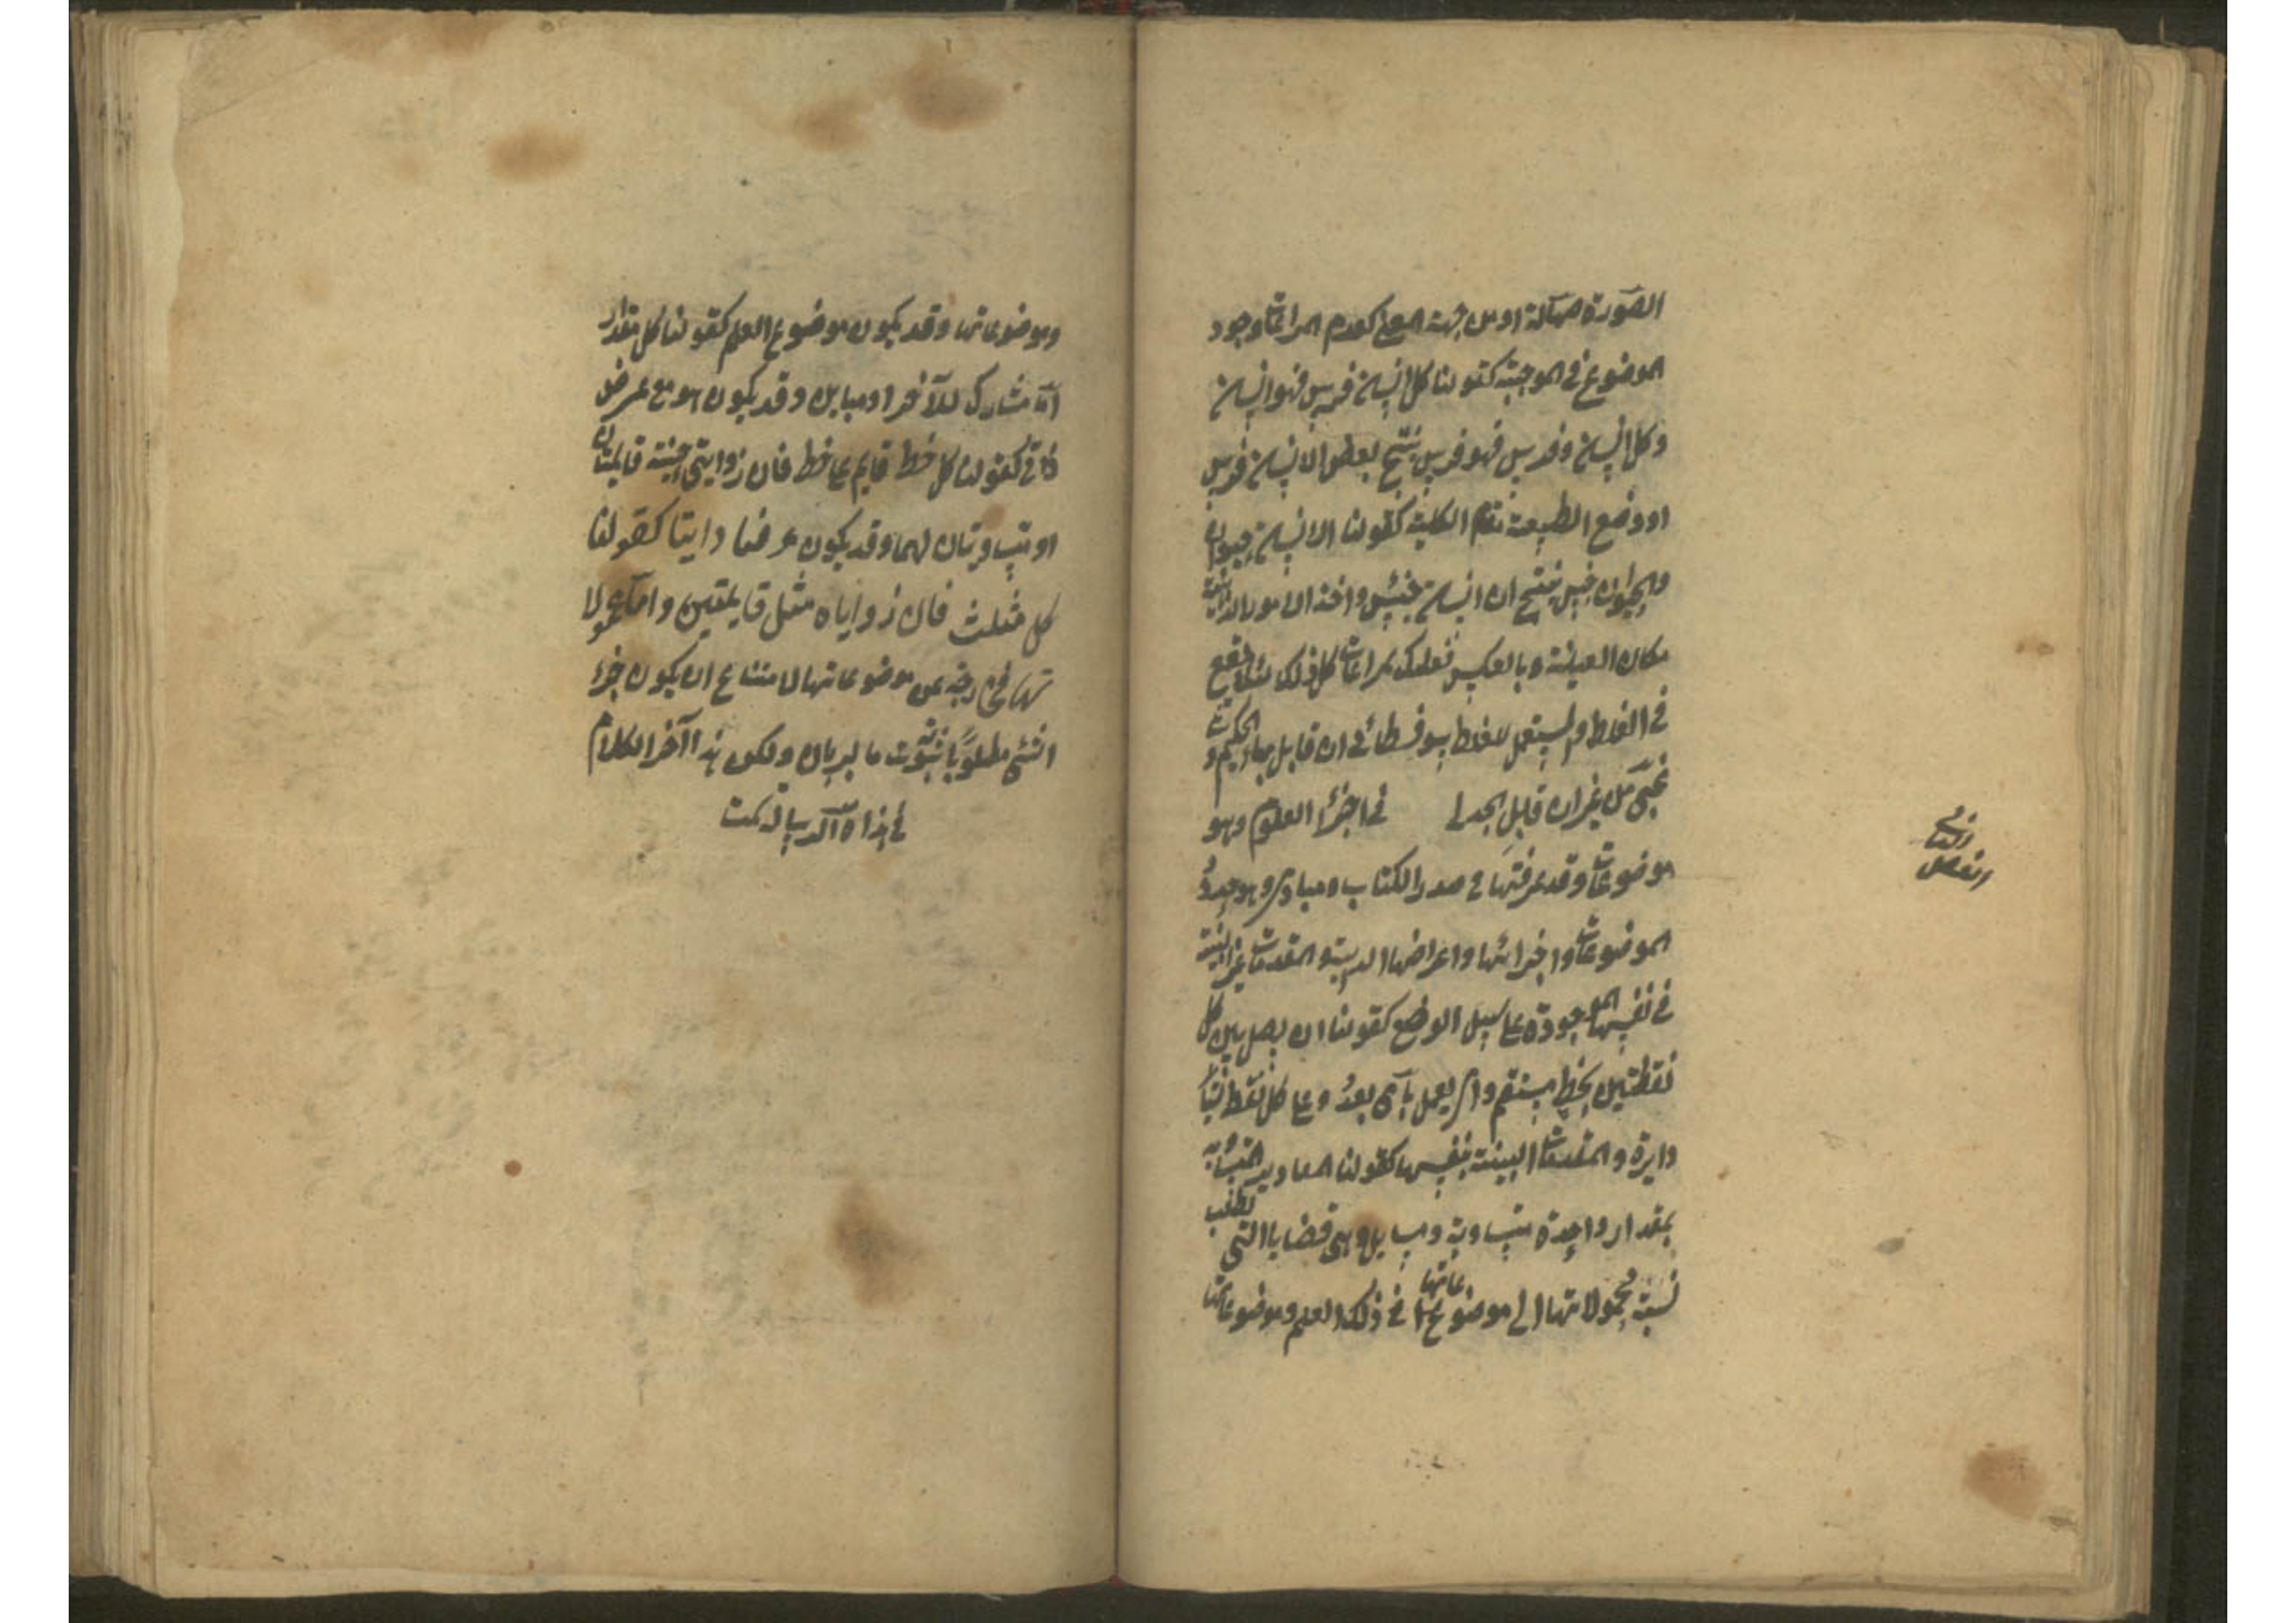 الصورة مهملة او من جهة المعنى كعدم المراعات وجود
الموضوع في الموجبة كقولنا كل انسان فرس فهو انسان
وكل انسان وفرس فهو فرس ينتج بعض الانسان فرس
او وضع الطبيعة مقام الكلية كقولنا الانسان حيوان
والحيوان جنس ينتج ان انسان جنس واخذ الامور الذهنية
مكان العينية وبالعكس فعليك بمراعات كل ذلك لئلا تقع
في الغلط والمستعمل للغلط سوفسطائي ان قابل بها الحكيم و
ان قابل الجدلي في اجزاء العلوم وهو
موضوعات وقد عرفتها في صدر الكتاب ومبادي وهو حدود
الموضوعات واجزائها واعراضها والمقدمات غير البينة
في نفسها الموجودة على سبيل الوضع كقولنا ان يصل بين كل
نقطتين بخط مستقيم وان يعمل باى بعد وعلى كل نقطة شئنا
دايرة والمقدمات البينة بنفسها كقولنا المقادير المتساوية
بمقدار واحدة متساوية ومسايل وهى قضايا التي تطلب
نسبة محمولاتها الى موضوعاتها في ذلك العلم وموضوعاتها
وموضوعاتها وقد يكون موضوع العلم كقولنا كل مقدار
اما مشارك للآخر او مباين وقد يكون هو مع عرض
ذاتي كقولنا كل خط قايم على خط فان زوايتى جنبيه قايمتان
او متساويتان لهما وقد يكون عرضا ذاتيا كقولنا
كل مثلث فان زواياه مثل قايمتين واما محمولا
تها فخارجة عن موضوعاتها لامتناع ان يكون جزء
الشئ مطلوبا ثبوته بالبرهان وليكن هذا آخر الكلام
في هذه الرسالة تمت